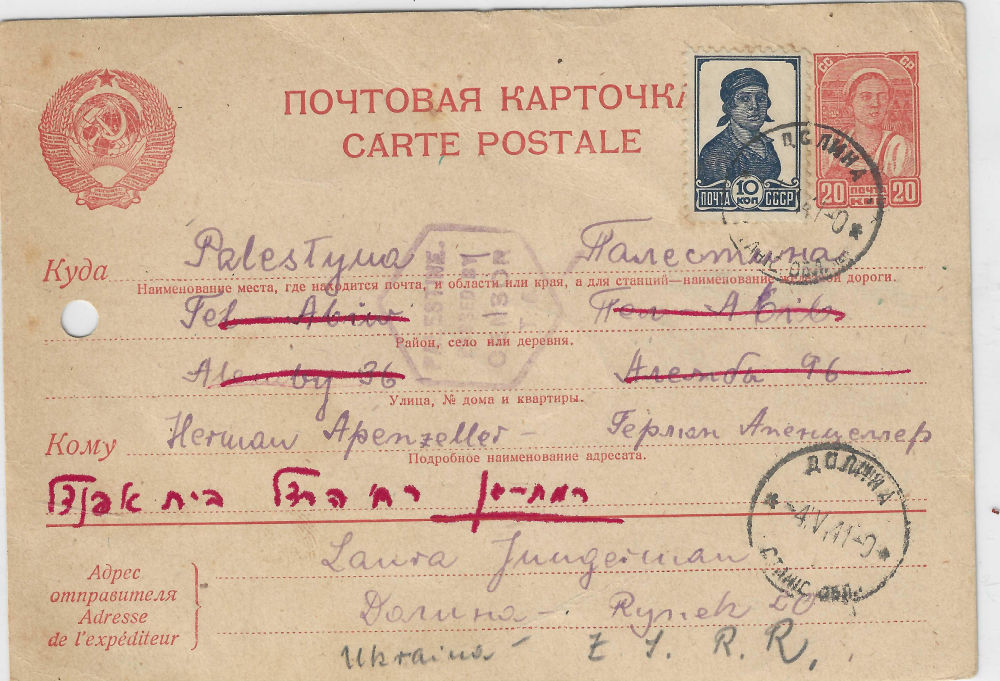 ПОЧТОВАЯ КАРТОЧКА
CARTE POSTALE
СС СР
10 КОП
ПОЧТА СССР
20 ПОЧТА 20
ДОЛИНА
Куда Palestyna Палестина
Наименование места, где находится почта, и области или края, а для станций—наименование железной дороги.
Tel - Abiw Тел - Абиб
Район, село или деревня.
36 Аленба 96
Улица, № дома и квартиры.
Кому Herman Apenzeller - Герман Апенцеллер
Подробное наименование адресата.
PALESTINE
CENSOR
רמת-גן רח' הרצל בית
ДОЛИНА
-4.V.41-0
СТАНІС. ОБЛ.
Laura Jungerman
Долина - Rynek 20
Адрес
отправителя
Adresse
de l'expéditeur
Ukraina Z. S. R. R.